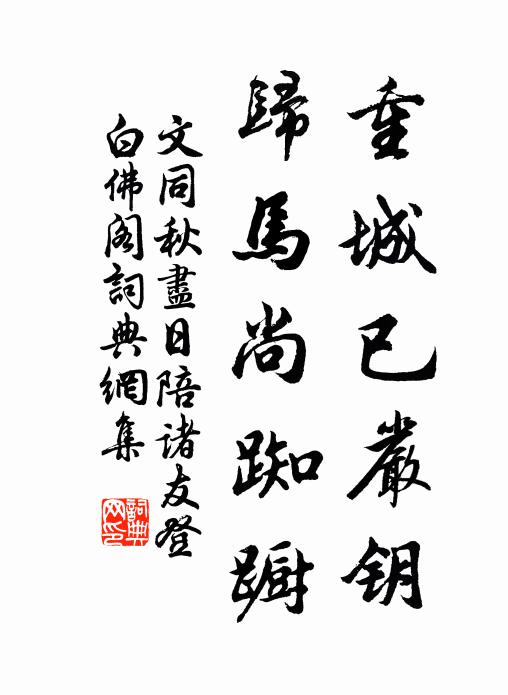 重城已嚴鑰
歸馬尚踟躕
文同秋盡日陪諸友登
白佛阁詞典網集
詞典网印